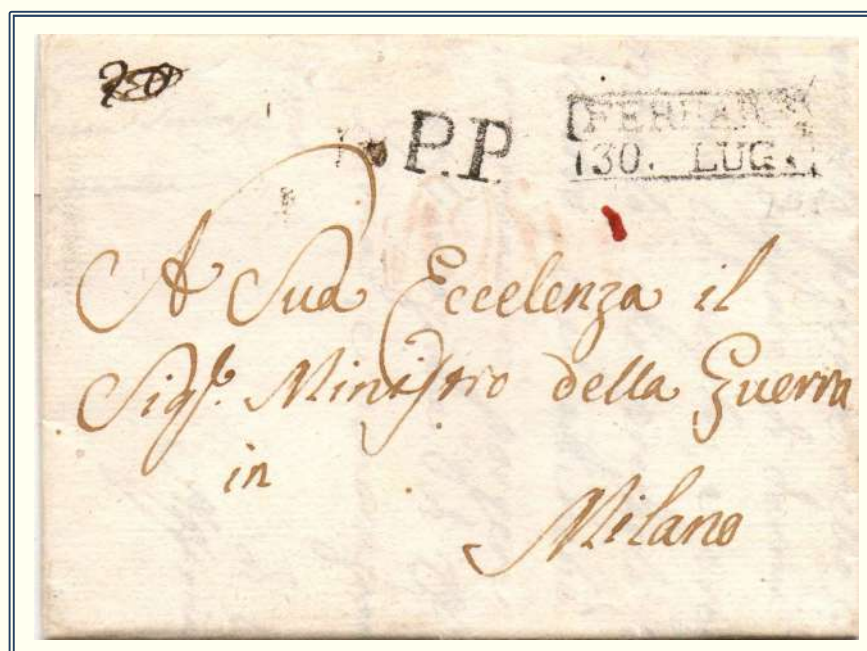 P.P.
FERRAR
30. LUG.
A Sua Eccelenza il
Sigr. Ministro della Guerra
in
Milano